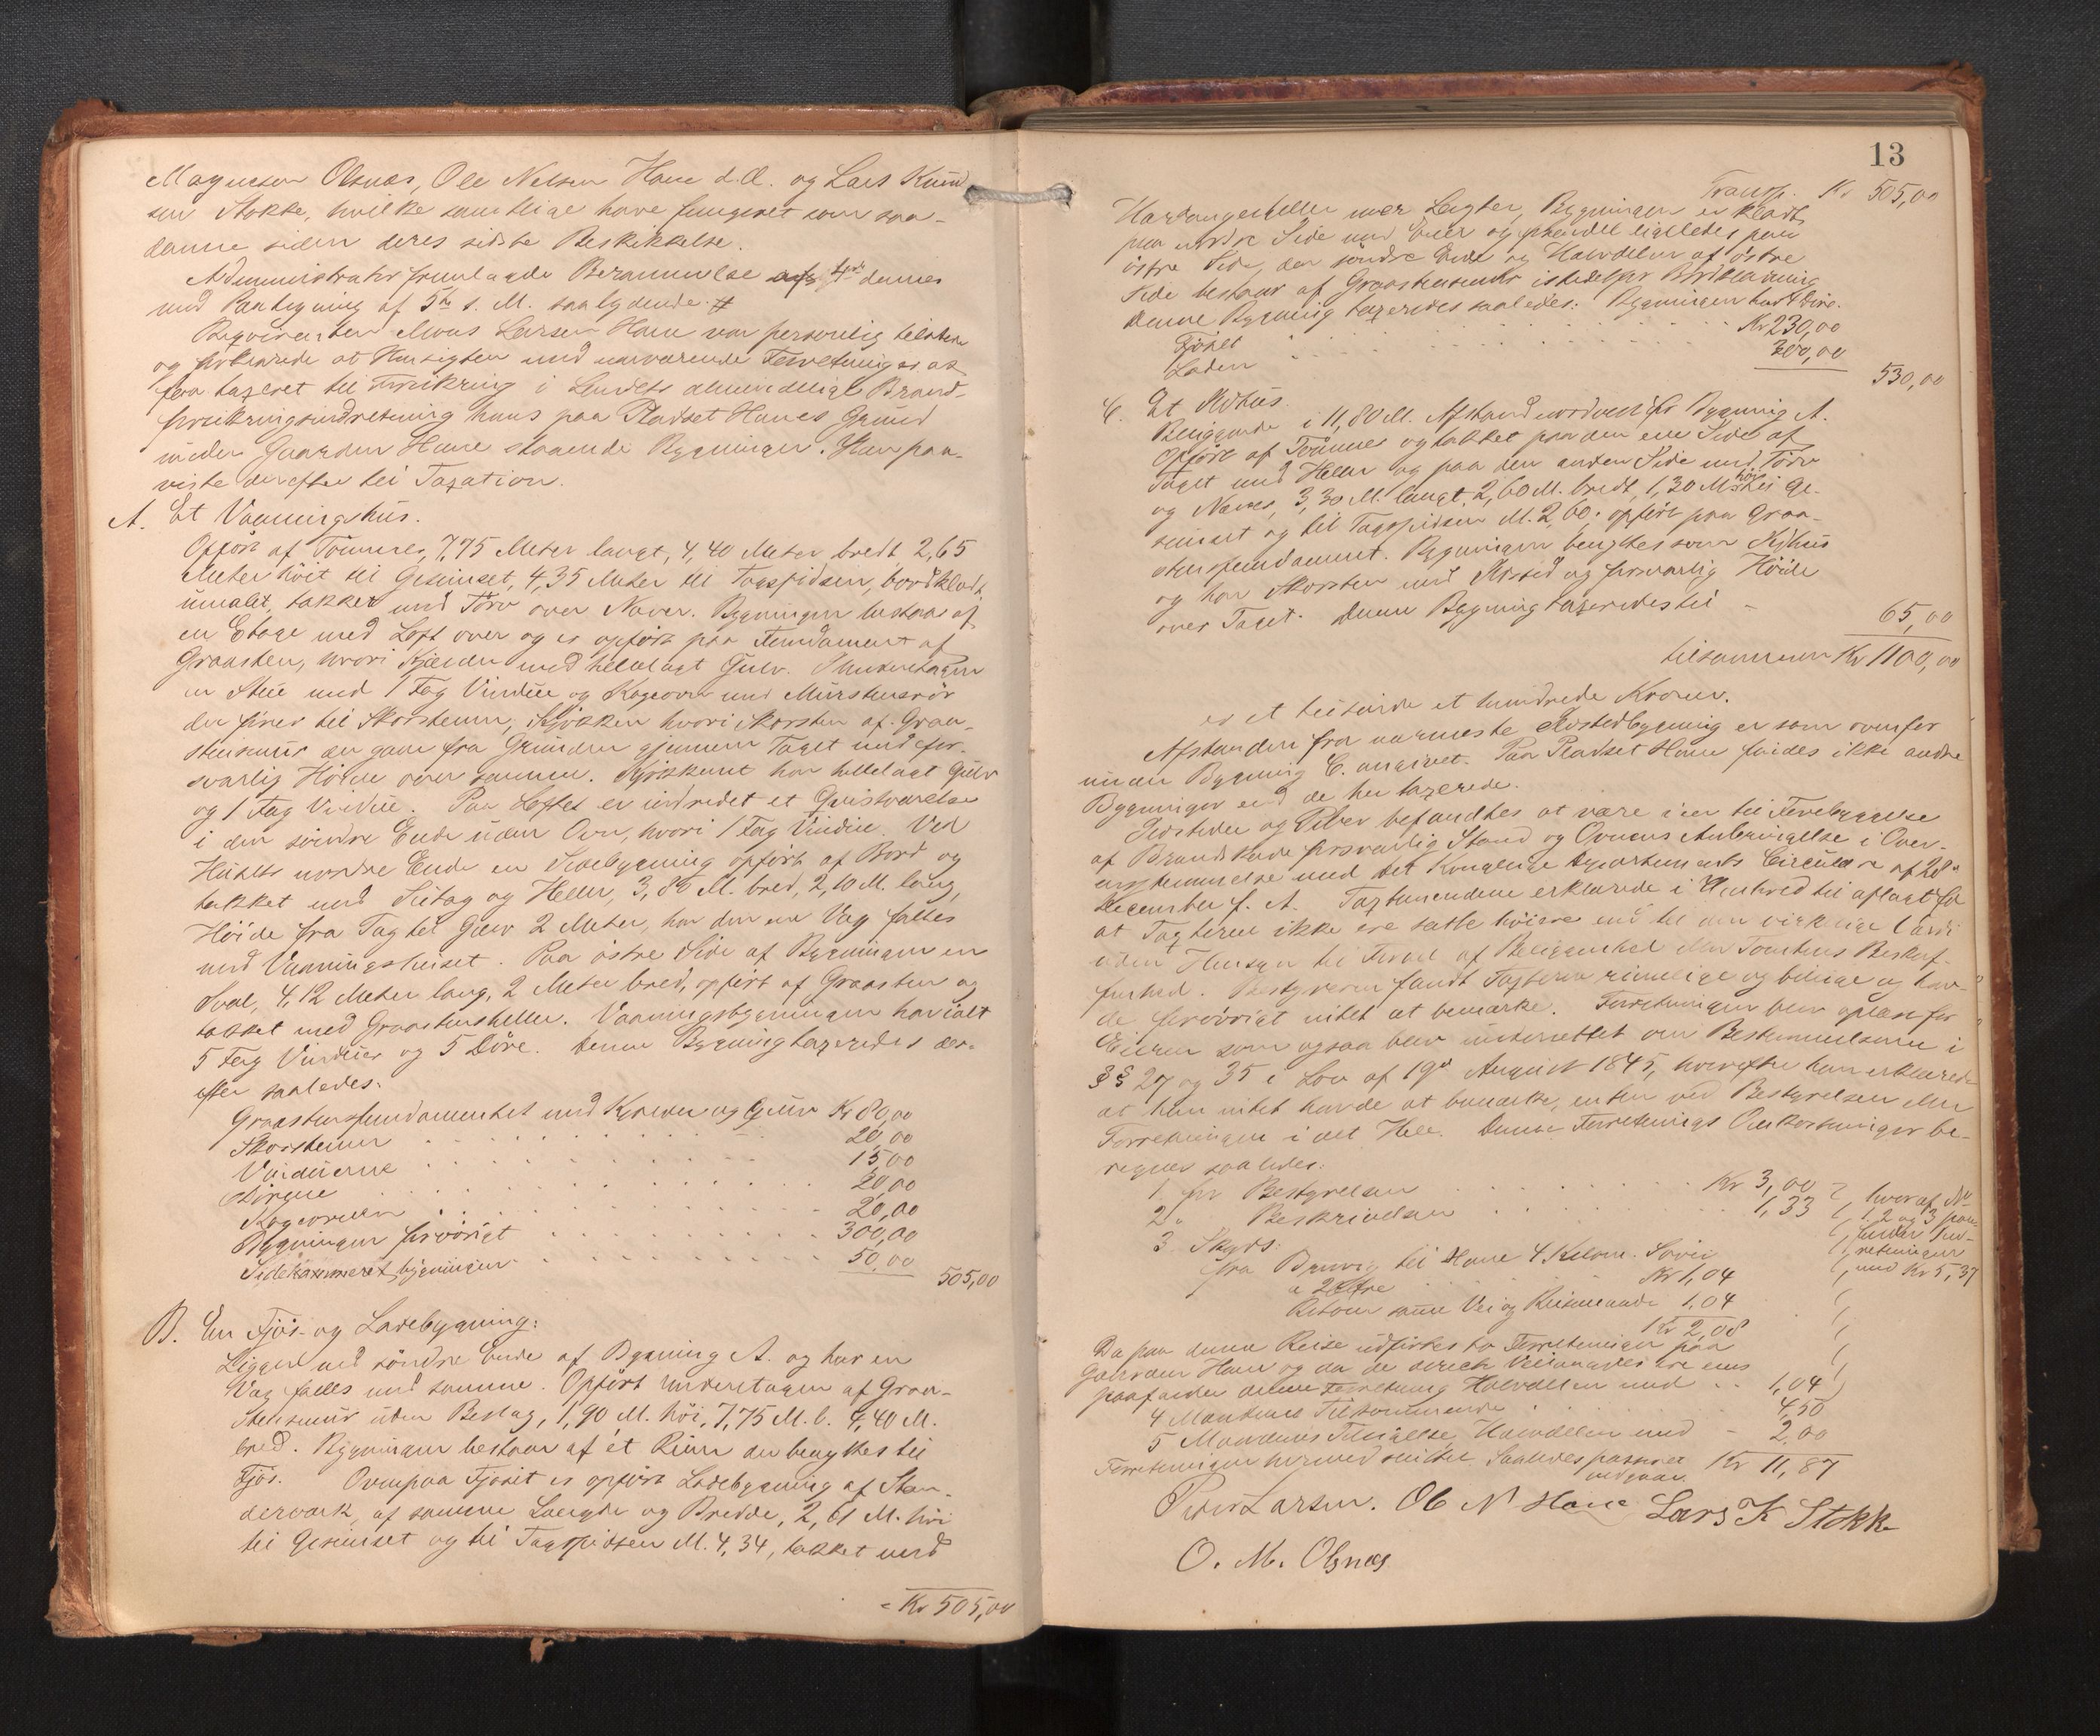 Magnesen Olsnæs, Ole Nilsen Hane d. Æ. og Lars Knud
sen Stokke, hvilke samtlige have fungeret som saa-
danne siden deres sidste Beskikkelse.
Administrator fremlagde Berammelse dennes
med Paategning af 5te s. M. saalydende #
Reqvirenten Mons Larsen Hane var personlig tilstede
og forklarede at Hensigten med nærværende Forretning er at
faa taxeret til Forsikring i Landets almindelige Brand-
forsikringsindretning hans paa Pladset Hanes Grund
under Gaarden Hane staaende Bygninger. Han paa-
viste derefter til Taxation.
A. Et Vaaningshus.
Opført af Tømmer, 7,75 Meter langt, 4,40 Meter bredt 2,65
Meter höit til Gesimset, 4,35 Meter til Tagspidsen, bordklædt,
umalet, tækket med Törv over Næver. Bygningen bestaar af
en Etage med Loft over og er opfört paa Fundament af
Graasten, hvori Kjælder med hellelagt Gulv. I Underetagen
en Stue med 1 Fag Vindue og Kogeovn med Murstensrör
der förer til Skorstenen, Kjökken hvori Skorsten af Graa-
stensmur der gaar fra Grunden gjennem Taget med for-
svarlig Höide over samme. Kjökkenet har hellelagt Gulv
og 1 Fag Vindue. Paa Loftet er indredet et Qvistværelse
i den söndre Ende uden Ovn, hvori 1 Fag Vindue. Ved
Husets nordre Ende en Sidebygning opfört af Bord og
tækket med Sutag og Heller, 3,86 M. bred, 2,10 M. lang,
Höide fra Tag til Gulv 2 Meter, har den ene Væg fælles
med Vaaningshuset. Paa östre Side af Bygningen en
Sval, 4,12 Meter lang, 2 Meter bred, opfört af Graasten og
tækket med Graastensheller. Vaaningsbygningen har ialt
5 Fag Vinduer og 5 Döre. Denne Bygning taxeredes der-
efter saaledes:
Graastensfundamentet med Kjælder og Gulv Kr 80,00
Skorstenen 20,00
Vinduerne 15,00
Dörene 20,00
Kogeovnen 20,00
Bygningen forövrigt 300,00
Sidekammeret, bygningen 50,00
505,00
B. En Fjös- og Ladebygning:
Ligger ved söndre Ende af Bygning A. og har en
Væg fælles med samme. Opfört Underetagen af Graa-
stensmur uden Beslag, 1,90 M. höi, 7,75 M. l. 4,40 M.
bred. Bygningen bestaar af et Rum der benyttes til
Fjös. Ovenpaa Fjöset er opfört Ladebygning af Stan-
derværk, af samme Længde og Bredde, 2,61 M. höi
til Gesimset og til Tagspidsen M. 4,34, tækket med
= Kr 505,00
13
Transp. Kr 505,00
Hardangerheller over Lægter, Bygningen er klædt
paa nordre Side med Bord og ligeledes paa
östre Side, den söndre Ende og Halvdelen af östre
Side bestaar af Graastensmur istedetfor Bordklædning
Denne Bygning taxeredes saaledes: Bygningen har 4 Döre.
Fjöset Kr 230,00
Laden 300,00
530,00
C. Et Ildhus.
Beliggende i 11,80 M. Afstand nordvest for Bygning A.
Opfört af Tömmer og tækket paa den ene Side af
Taget med Heller og paa den anden Side med Törv
og Næver, 3,30 M. langt, 2,60 M. bredt, 1,30 M. höi til Ge-
simset og til Tagspidsen M. 2,60. opfört paa Graa-
stensfundament. Bygningen benyttes som Ildhus
og har Skorsten med Ildsted og forsvarlig Höide
over Taget. Denne Bygning taxeredes til – 65,00
tilsammen Kr 1100,00
er et tusinde et hundrede Kroner.
Afstanden fra nærmeste Ildstedbygning er som ovenfor
under Bygning C. angivet. Paa Pladset Hane findes ikke andre
Bygninger end de her taxerede.
Ildsteder og Piber befandtes at være i en til Forebyggelse
af Brandskade forsvarlig Stand og Ovnens Anbringelse i Over-
ensstemmelse med det Kongelige Departements Circulære af 28de
December f. A. Taxtmændene erklærede i Henhold til aflagt Ed
at Taxterne ikke ere satte höiere end til den virkelige Værdi
uden Hensyn til Fordel af Beliggenhed eller Tomtens Beskaf-
fenhed. Bestyreren fandt Taxterne rimelige og billige og hav-
de forövrigt intet at bemærke. Forretningen blev oplæst for
Eieren som ogsaa blev underrettet om Bestemmelserne i
§§ 27 og 35 i Lov af 19de August 1845, hvorefter han erklærede
at han intet havde at bemærke, enten ved Bestyrelsen eller
Forretningen i det Hele. Denne Forretnings Omkostninger be-
regnes saaledes:
1. for Bestyrelsen Kr 3,00
2 " Beskrivelsen 1,33
3 Skyds:
fra til Hane 4 Kilom.
Kr 1,04
Retour samme Vei og 1,04
Kr 2,08
hvoraf No
1, 2 og 3 paa-
retningen
med Kr 5,37
Da paa denne Reise udförtes to Forretninger paa
Gaarden Hane og da de
paafalder denne Forretning Halvdelen med 1,04
4 Mændenes Tilkommende 4,50
5 Mændenes Halvdelen med – 2,00
Forretningen hermed sluttet. Saaledes passeret Kr 11,87
Peder Larsen. Ole N Hane Lars K Stokk
O. M. Olsnæs